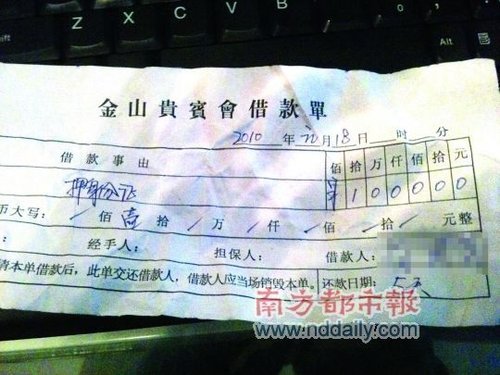 Z X C V B N
Alt
金山貴賓會借款單
2010年10月18日 时 分
借款事由 佰 拾 万 仟 佰 拾 元
押身份证 1 0 0 0 0 0
币大写: 佰 壹 拾 万 仟 佰 拾 元整
: 经手人: 担保人: 借款人:
清本单借款后,此单交还借款人,借款人应当场销毁本单。 还款日期: 5天
南方都市報
www.nddaily.com